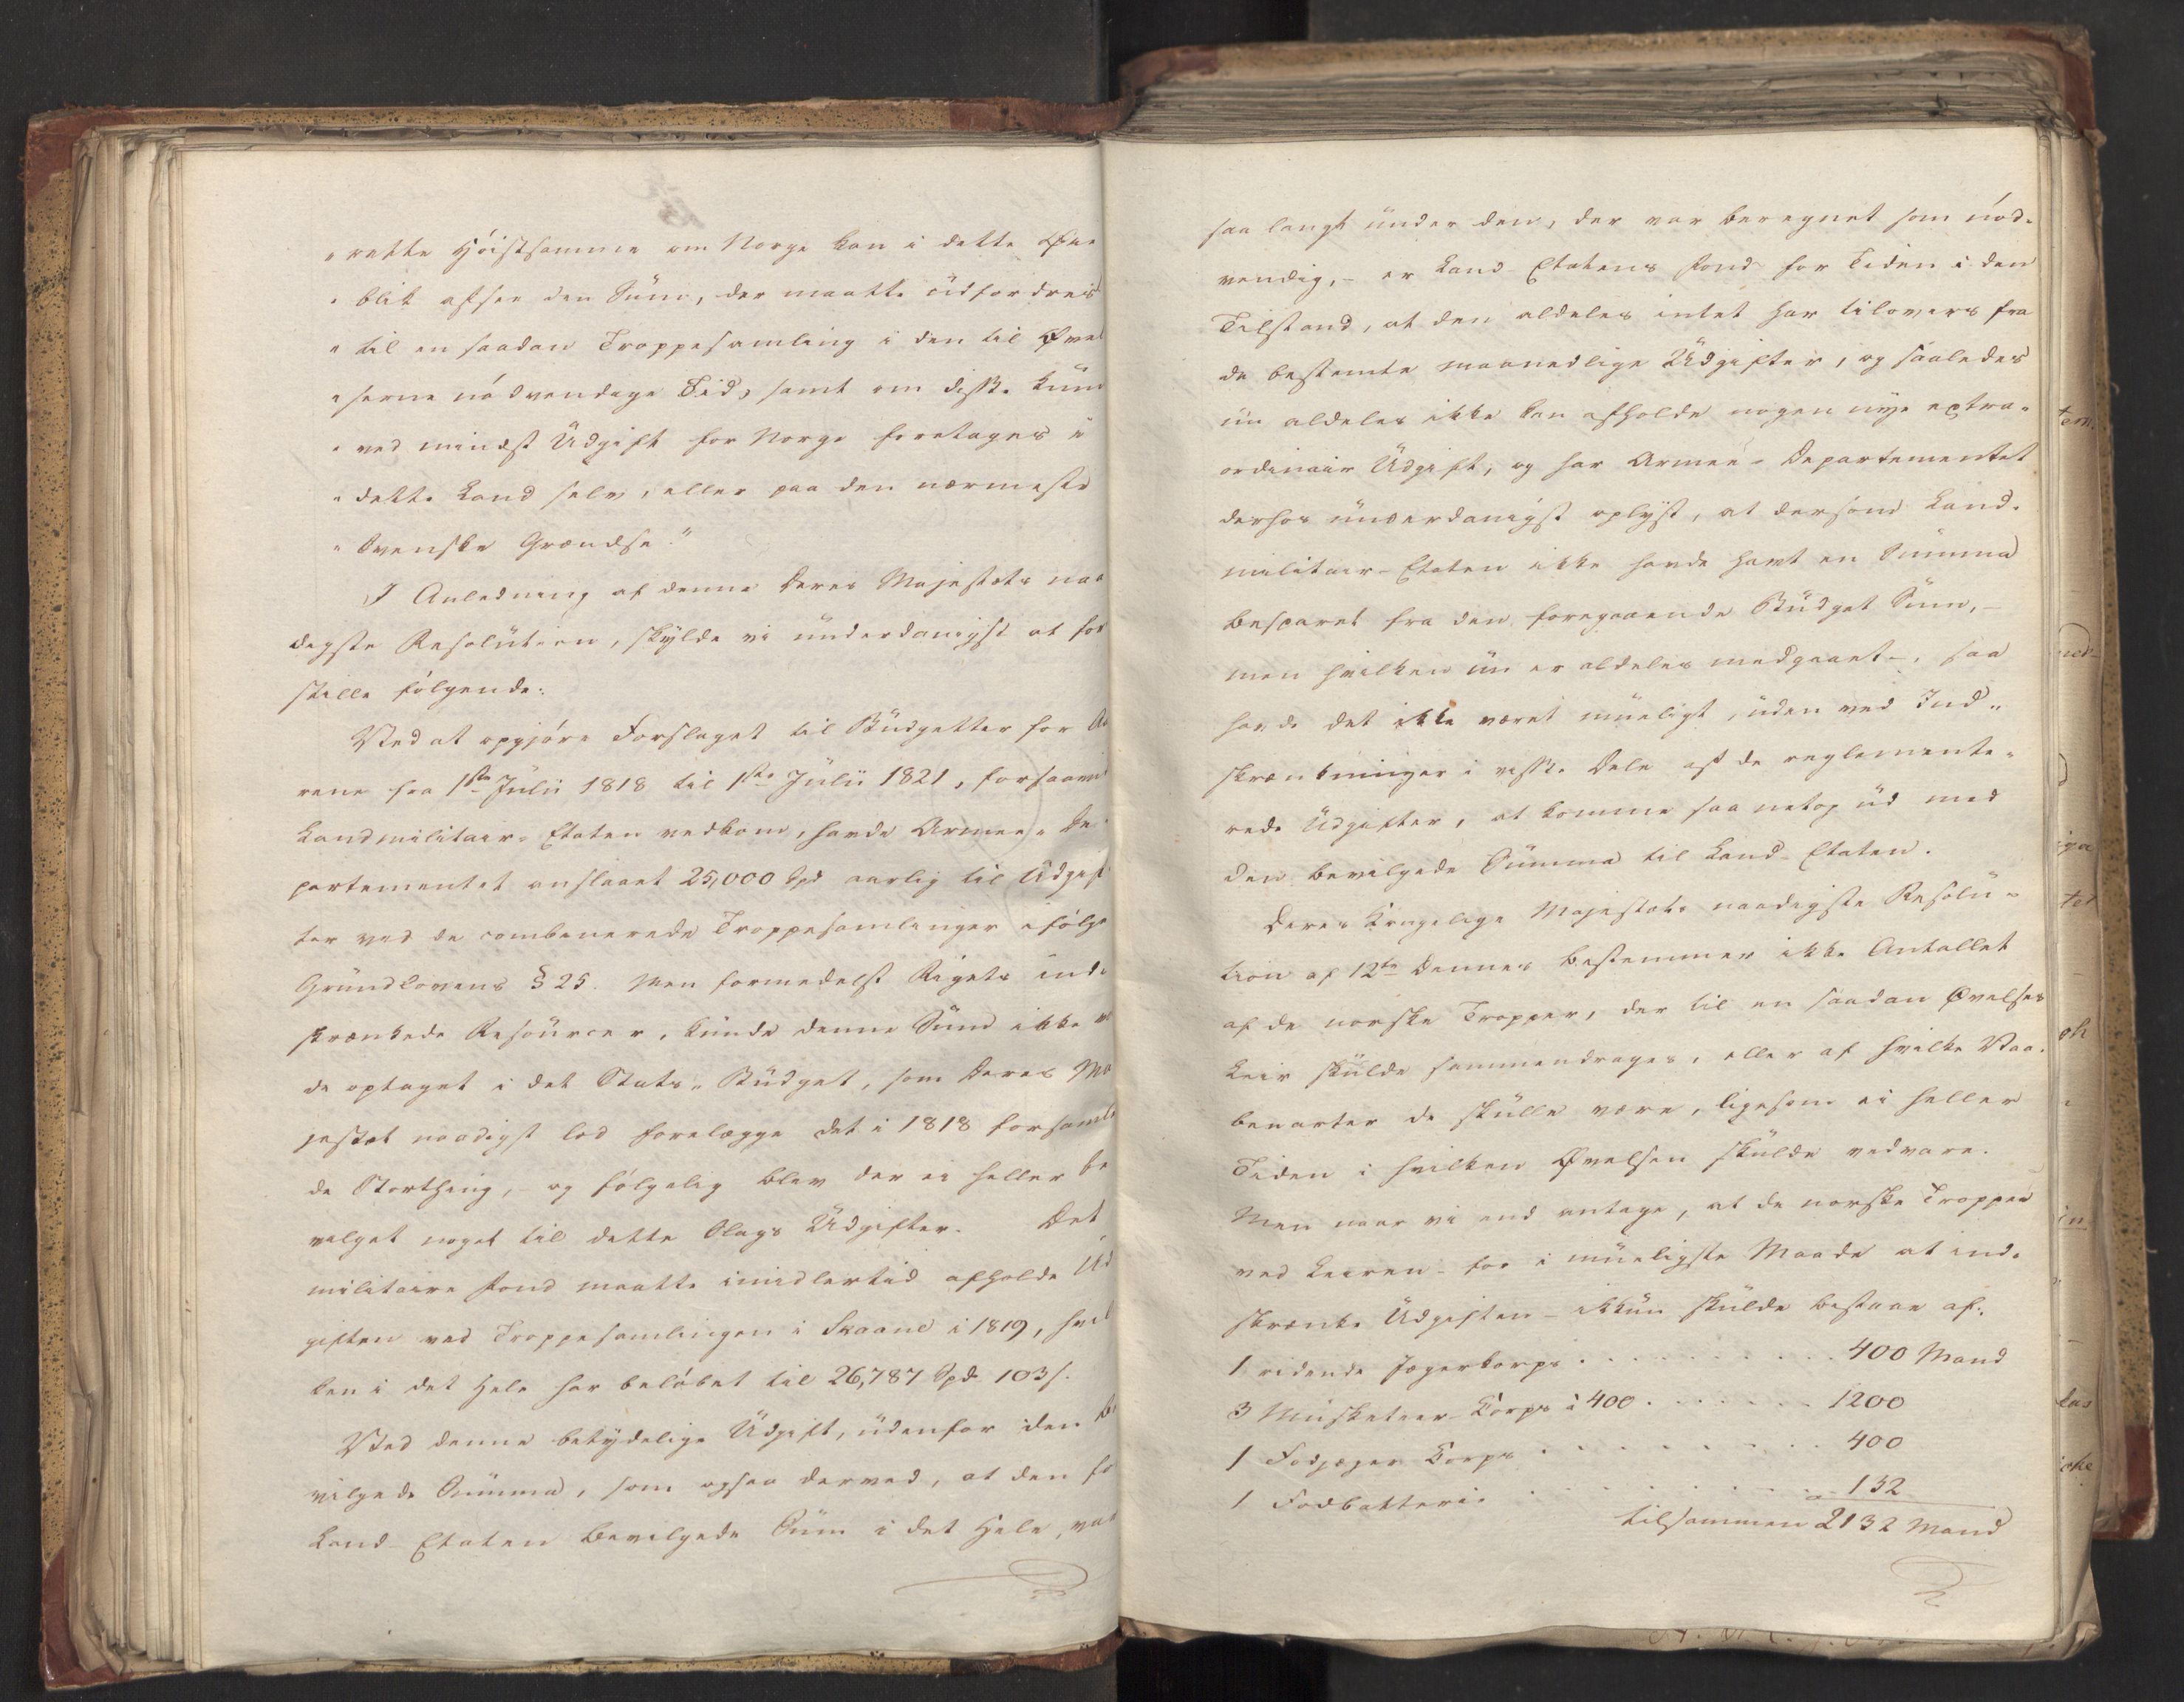 "rette Høistsamme om Norge kan i dette Øie
"blik afsee den Sum, der maatte udfordres
"til en saadan Troppesamling i den til Øvel
"serne nødvendige Tid, samt om disse kun
"ved mindst Udgift for Norge foretages i
"dette Land selv, eller paa den nærmeste
"Svenske Grændse."
I Anledning af denne Deres Majestæts naa
digste Resolution, skylde vi underdanigst at fore
stille følgende:
Ved at opgjøre Forslaget til Budgetter for Aa
rene fra 1ste Julii 1818 til 1ste Julii 1821, forsaavidt
Landmilitair-Etaten vedkom, havde Armee-De
partementet anslaaet 25,000 Spd aarlig til Udgif
ter ved de combinerede Troppesamlinger ifølge
Grundlovens § 25. Men formedelst Rigets ind
skrænkede Resourcer, kunde denne Sum ikke vor
de optaget i det Stats-Budget, som Deres Ma
jestæt naadigst lod forelægge det i 1818 forsamle
de Storthing, - og følgelig blev der ei heller be
vilget noget til dette Slags Udgifter. Det
militaire Fond maatte imidlertid afholde Ud
giften ved Troppesamlingen i Skaane i 1819, hvil
ken i det Hele har beløbet til 26,787 Spd 103 s.
Ved denne betydelige Udgift, udenfor den be
vilgede Summa, som ogsaa derved, at den for
Land-Etaten bevilgede Sum i det Hele, var
saa langt under den, der var beregnet som nød-
vendig, - er Land-Etatens Fond for Tiden i den
Tilstand, at den aldeles intet har tilovers fra
de bestemte maanedlige Udgifter, og saaledes
nu aldeles ikke kan afholde nogen nye extra-
ordinair Udgift, og har Armee-Departementet
derhos underdanigst oplyst, at dersom Land-
militair-Etaten ikke havde havt en Summa
besparet fra den foregaaende Budget Sum, -
men hvilken nu er aldeles medgaaet -, saa
havde det ikke været mueligt, uden ved Ind-
skrænkninger i visse Dele af de reglemente-
rede Udgifter, at komme saa netop ud med
den bevilgede Summa til Land-Etaten.
Deres Kongelige Majestæts naadigste Resolu-
tion af 12te Dennes bestemmer ikke Antallet
af de norske Tropper, der til en saadan Øvelses
Leir skulde sammendrages, eller af hvilke Vaa-
benarter de skulle være, ligesom ei heller
Tiden i hvilken Øvelsen skulde vedvare.
Men naar vi end antage, at de norske Tropper
ved Leiren - for i mueligste Maade at ind-
skrænke Udgiften - ikkun skulde bestaae af:
1 ridende Jægerkorps . . . . . . . . . . 400 Mand
3 Musketeer-Korps à 400 . . . . . . . 1200
1 Fodjæger Korps . . . . . . . . . . 400
1 Fodbatterie . . . . . . . . . . . 132
tilsammen 2132 Mand